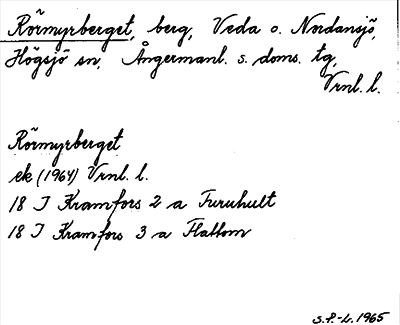 Rörmyrberget, berg, Veda o. Nordansjö,
Högsjö sn, Ångermanl. s. doms. tg,
Vrnl. l.
Rörmyrberget
ek (1964) Vrnl. l.
18 I Kramfors 2 a Furuhult
18 I Kramfors 3 a Flattom
S.P.-L. 1965